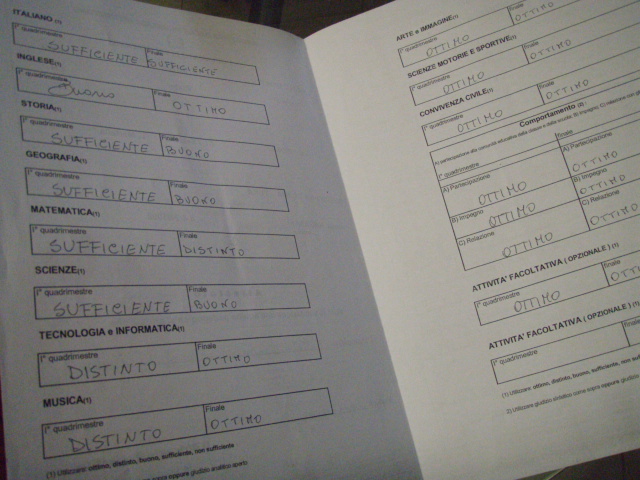 ITALIANO (1)
I° quadrimestre Finale
SUFFICIENTE SUFFICIENTE
INGLESE(1)
I° quadrimestre Finale
Buono OTTIMO
STORIA(1)
I° quadrimestre Finale
SUFFICIENTE BUONO
GEOGRAFIA(1)
I° quadrimestre Finale
SUFFICIENTE BUONO
MATEMATICA(1)
I° quadrimestre Finale
SUFFICIENTE DISTINTO
SCIENZE(1)
I° quadrimestre Finale
SUFFICIENTE BUONO
TECNOLOGIA e INFORMATICA(1)
I° quadrimestre Finale
DISTINTO OTTIMO
MUSICA(1)
I° quadrimestre Finale
DISTINTO OTTIMO
(1) Utilizzare: ottimo, distinto, buono, sufficiente, non sufficiente
oppure giudizio analitico aperto
ARTE e IMMAGINE(1)
I° quadrimestre finale
OTTIMO OTTIMO
SCIENZE MOTORIE E SPORTIVE(1)
I° quadrimestre finale
OTTIMO OTTIMO
CONVIVENZA CIVILE(1)
I° quadrimestre finale
OTTIMO OTTIMO
Comportamento (2)
I° quadrimestre finale
A) Partecipazione A) Partecipazione
OTTIMO OTTIMO
B) Impegno B) Impegno
OTTIMO OTTIMO
C) Relazione C) Relazione
OTTIMO OTTIMO
ATTIVITA' FACOLTATIVA ( OPZIONALE ) (1)
I° quadrimestre finale
OTTIMO
ATTIVITA' FACOLTATIVA ( OPZIONALE )
I° quadrimestre finale
(1) Utilizzare: ottimo, distinto, buono, sufficiente, non
2) Utilizzare giudizio sintetico come sopra oppure giudizio